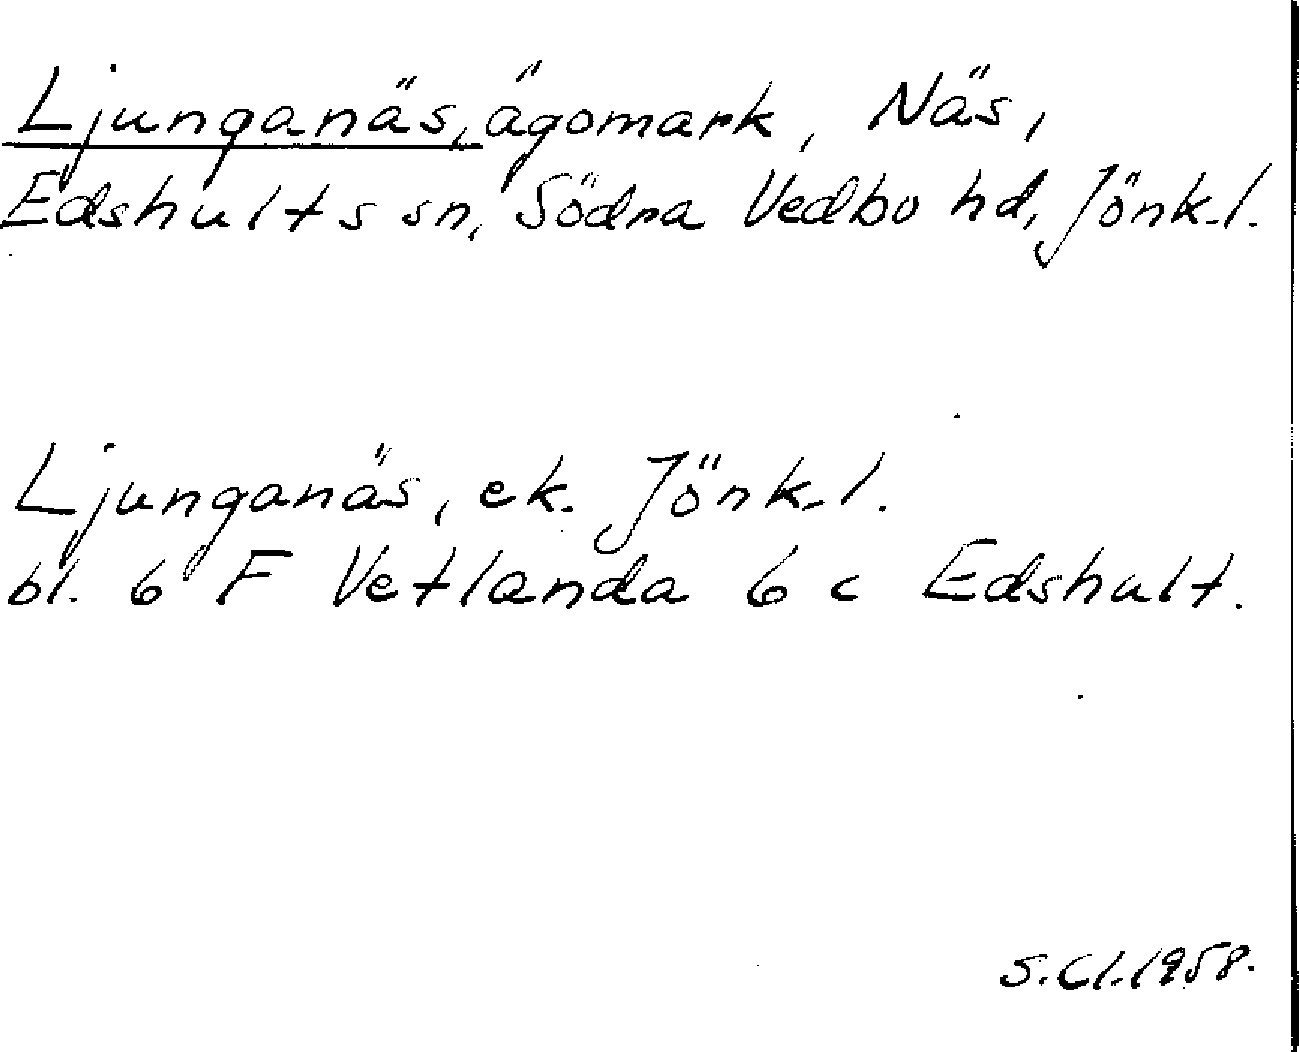 Ljunganäs, ägomark, Näs,
Edshults sn, Södra Vedbo hd, Jönk.l.
Ljunganäs, ek. Jönk.l.
bl. 6 F Vetlanda 6 c Edshult.
S.Cl.1958.